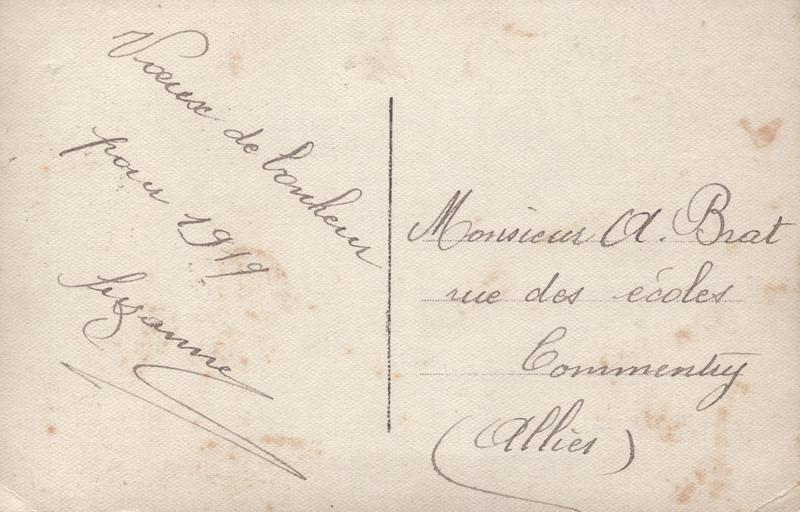 Vœux de bonheur
pour 1919
Suzanne
Monsieur A. Brat
rue des écoles
Commentry
(Allier)